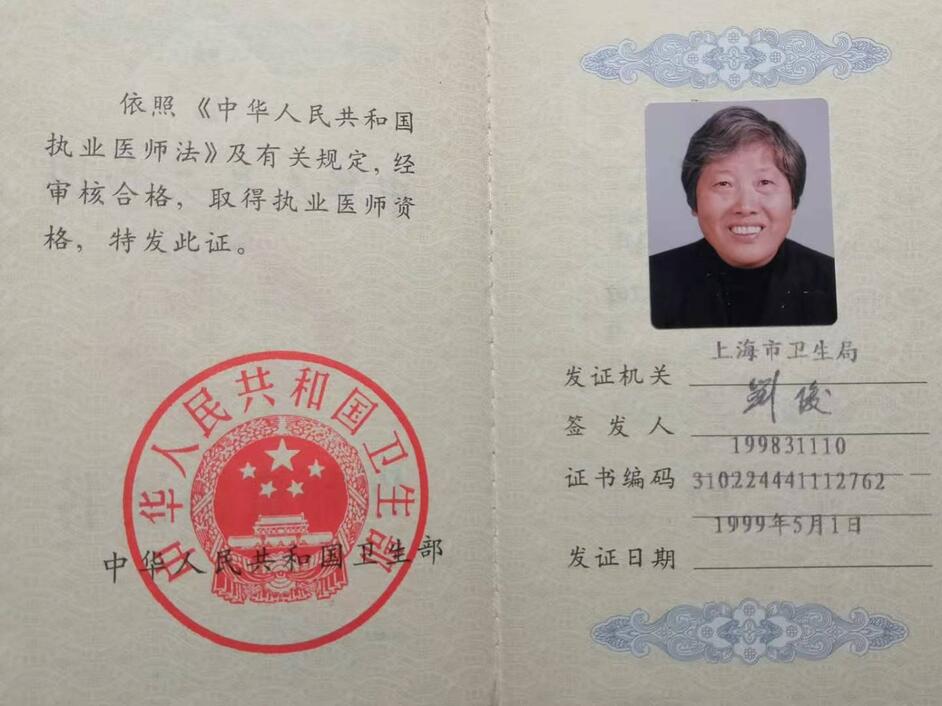 依照《中华人民共和国
执业医师法》及有关规定,经
审核合格，取得执业医师资
格，特发此证。
中华人民共和国卫生部
中华人民共和国卫生部
发证机关 上海市卫生局
签发人 劉俊
199831110
证书编码 310224441112762
发证日期 1999年5月1日